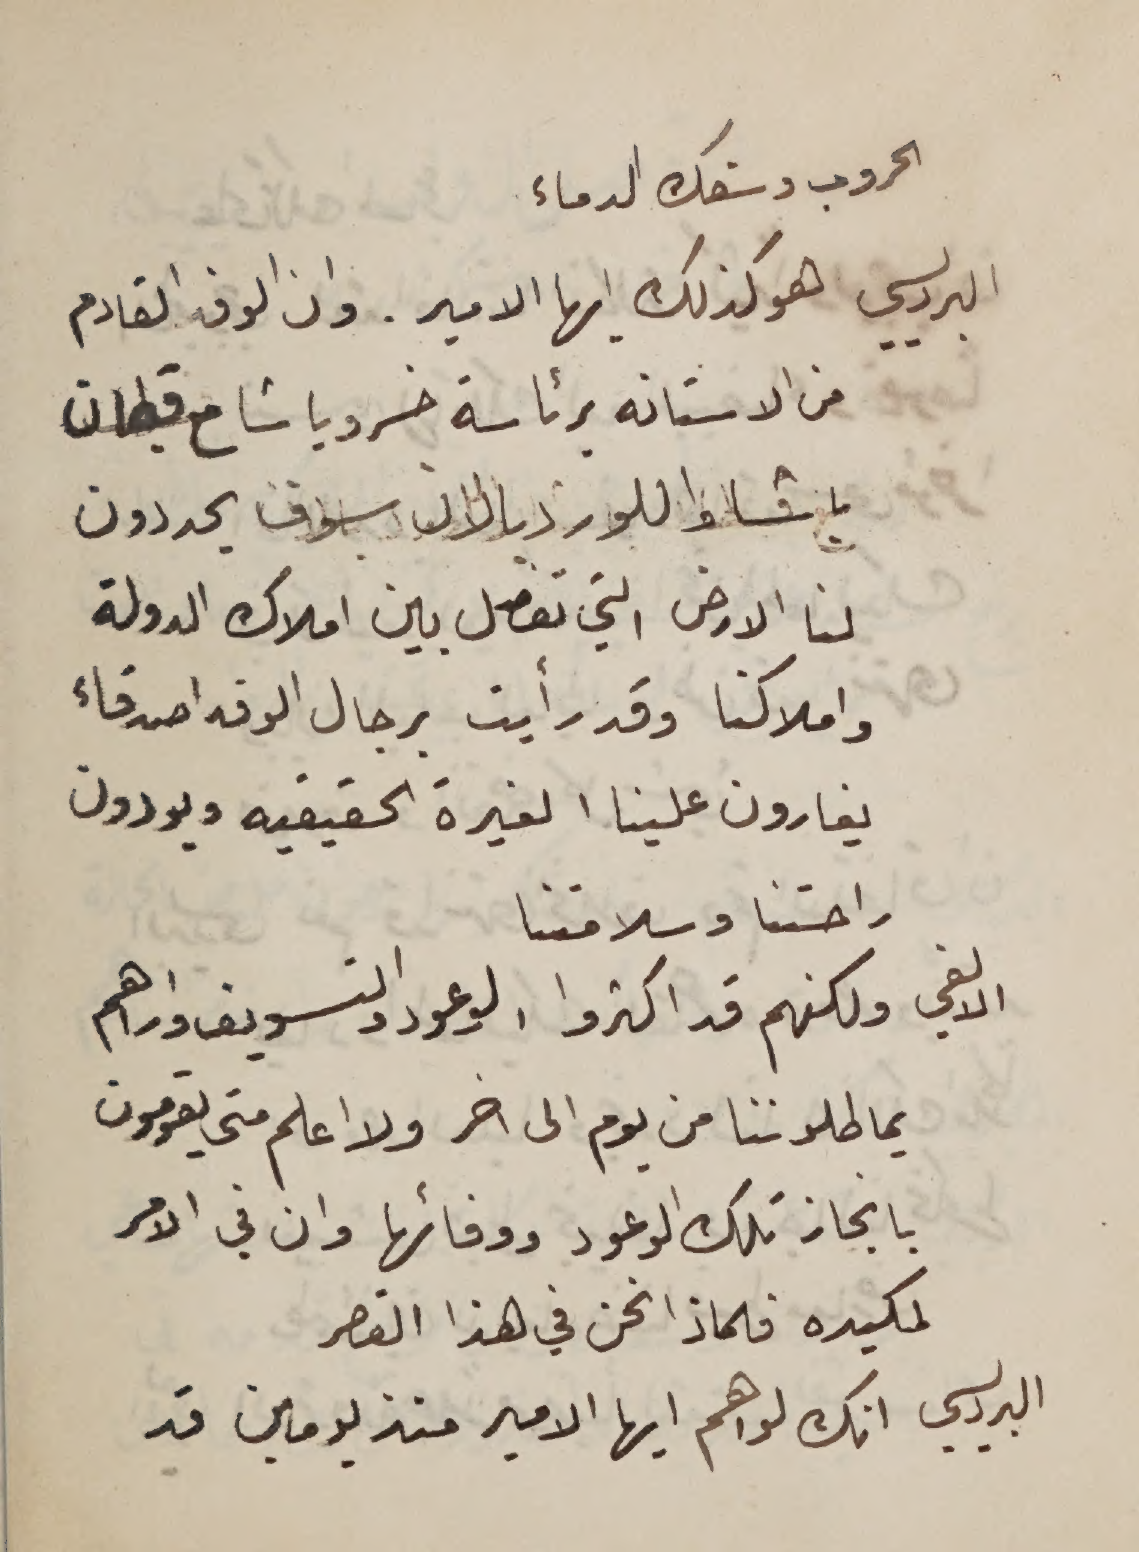 الحروب وسفك الدماء
البرديسي هو كذلك ايها الامير . وان الوفد القادم
من الاستانه برئاسة خسرو باشا مع قبطان
باشا واللورد بالان سوف يحددون
لنا الارض التي تفصل بين املاك الدولة
واملاكنا وقد رأيت برجال الوفد اصدقاء
يغارون علينا الغيرة الحقيقيه ويودون
راحتنا وسلامتنا
الالفي ولكنهم قد اكثروا الوعود والتسويف واراهم
يماطلوننا من يوم الى اخر ولا اعلم متى يقومون
بانجاز تلك الوعود ووفائها وان في الامر
لمكيده فلماذا نحن في هذا القصر
البرديسي انك لواهم ايها الامير منذ يومين قد